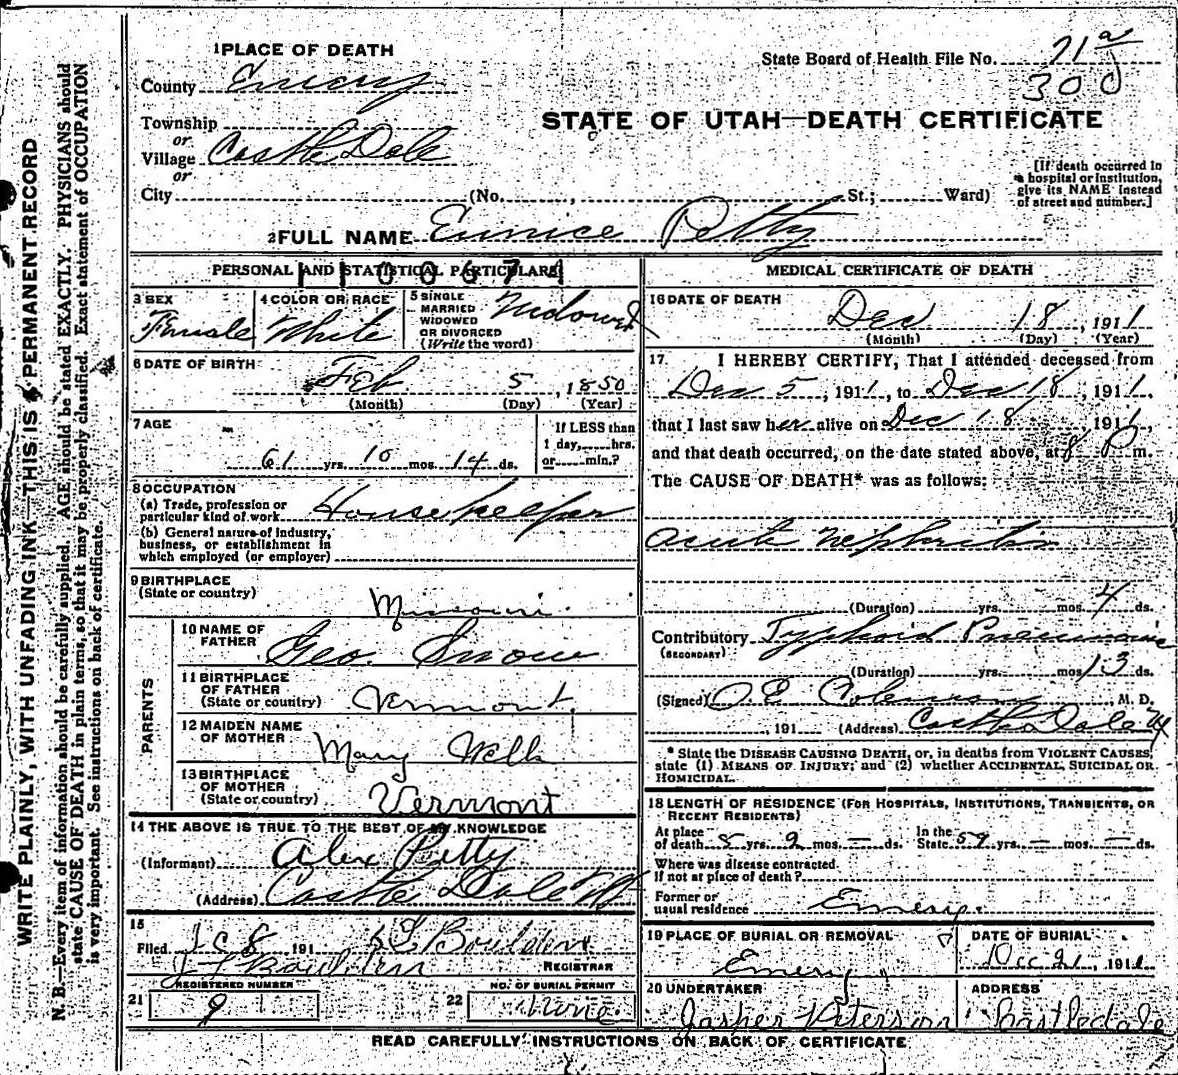 1 PLACE OF DEATH
State Board of Health File No. 71 a
300
County Emery
STATE OF UTAH—DEATH CERTIFICATE
Township
or
Village Castle Dale
or
City (No. , St.; Ward)
[If death occurred in a hospital or institution, give its NAME instead of street and number.]
2 FULL NAME Eunice Petty
PERSONAL AND STATISTICAL PARTICULARS
MEDICAL CERTIFICATE OF DEATH
3 SEX
Female
4 COLOR OR RACE
White
5 SINGLE
MARRIED
WIDOWED
OR DIVORCED
(Write the word)
Widowed
6 DATE OF BIRTH
Feb 5, 1850
(Month) (Day) (Year)
7 AGE
61 yrs. 10 mos. 14 ds.
If LESS than
1 day, hrs.
or min.?
8 OCCUPATION
(a) Trade, profession or
particular kind of work Housekeeper
(b) General nature of industry,
business, or establishment in
which employed (or employer)
9 BIRTHPLACE
(State or country)
Missouri
PARENTS
10 NAME OF
FATHER
Geo. Snow
11 BIRTHPLACE
OF FATHER
(State or country)
Vermont
12 MAIDEN NAME
OF MOTHER
Mary Wells
13 BIRTHPLACE
OF MOTHER
(State or country)
Vermont
14 THE ABOVE IS TRUE TO THE BEST OF MY KNOWLEDGE
(Informant) Alex Petty
(Address) Castle Dale
15
Filed 191
REGISTRAR
REGISTERED NUMBER
21 9
NO. OF BURIAL PERMIT
22 Nine
16 DATE OF DEATH
Dec 18, 1911
(Month) (Day) (Year)
17. I HEREBY CERTIFY, That I attended deceased from
Dec 5, 1911, to Dec 18, 1911,
that I last saw her alive on Dec 18, 1911,
and that death occurred, on the date stated above, at 8 P m.
The CAUSE OF DEATH* was as follows:
Acute Nephritis
(Duration) yrs. mos. 4 ds.
Contributory Typhoid Pneumonia
(SECONDARY)
(Duration) yrs. mos. 13 ds.
(Signed) O. E. Coleman, M. D.
, 191 (Address) Castle Dale
* State the DISEASE CAUSING DEATH, or, in deaths from VIOLENT CAUSES,
state (1) MEANS OF INJURY; and (2) whether ACCIDENTAL, SUICIDAL OR
HOMICIDAL.
18 LENGTH OF RESIDENCE (FOR HOSPITALS, INSTITUTIONS, TRANSIENTS, OR
RECENT RESIDENTS)
At place
of death 8 yrs. 2 mos. — ds.
In the
State 59 yrs. — mos. — ds.
Where was disease contracted
if not at place of death?
Former or
usual residence Emery.
19 PLACE OF BURIAL OR REMOVAL
Emery
DATE OF BURIAL
Dec 21, 1911
20 UNDERTAKER
Jasper Peterson
ADDRESS
Castledale
READ CAREFULLY INSTRUCTIONS ON BACK OF CERTIFICATE
WRITE PLAINLY, WITH UNFADING INK—THIS IS A PERMANENT RECORD
N. B.—Every item of information should be carefully supplied. AGE should be stated EXACTLY. PHYSICIANS should
state CAUSE OF DEATH in plain terms, so that it may be properly classified. Exact statement of OCCUPATION
is very important. See instructions on back of certificate.